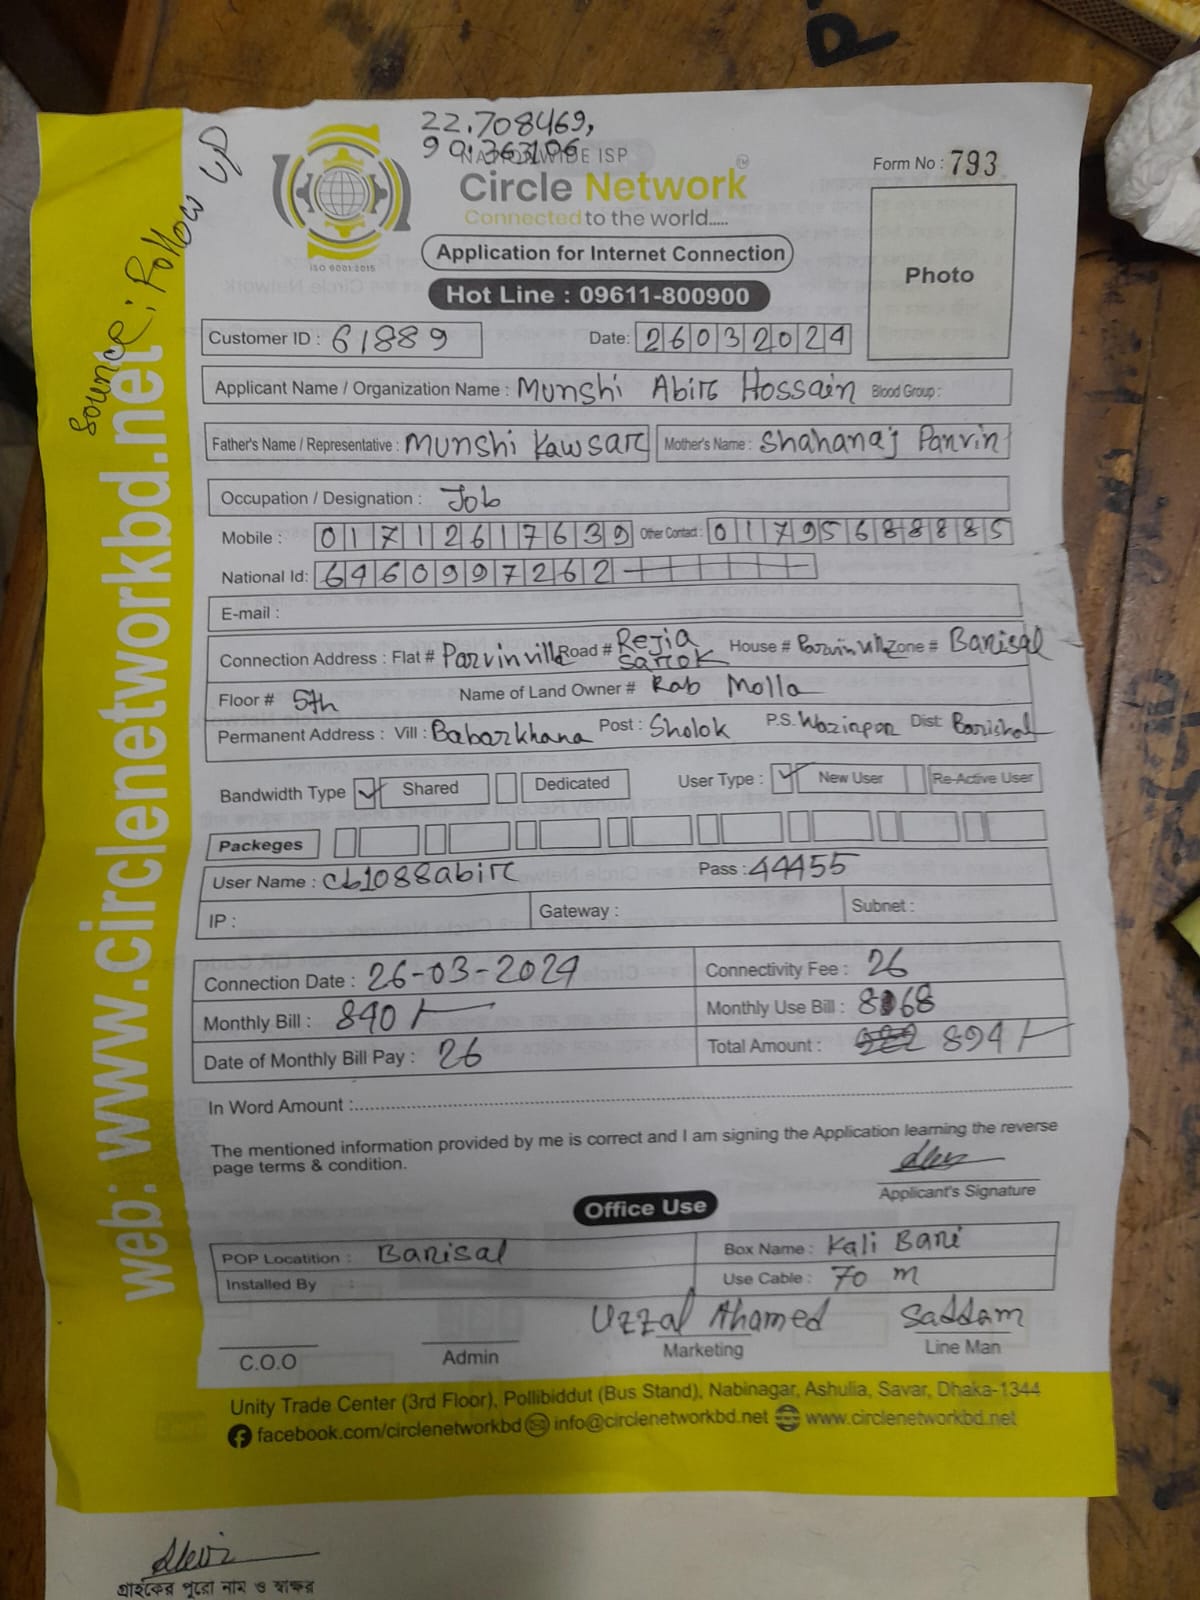 22.708469,
90.363106
NATIONWIDE ISP
Circle Network
Connected to the world.....
Application for Internet Connection
Hot Line : 09611-800900
ISO 9001:2015
Form No : 793
Photo
Source: Follow UP
web: www.circlenetworkbd.net
Customer ID : 61889 Date: 26032024
Applicant Name / Organization Name : Munshi Abir Hossain Blood Group :
Father's Name / Representative : Munshi Kawsar Mother's Name : Shahanaj Parvin
Occupation / Designation : Job
Mobile : 01712617639 Other Contact : 01795688885
National Id: 6460997262
E-mail :
Connection Address : Flat # Parvinvilla Road # Rejia Sarok House # Parvin Villa Zone # Barisal
Floor # 5th Name of Land Owner # Rab Molla
Permanent Address : Vill : Babarkhana Post : Sholok P.S. Wazirpor Dist: Barishal
Bandwidth Type Shared Dedicated User Type : New User Re-Active User
Packeges
User Name : cb1088abir Pass : 44455
IP : Gateway : Subnet :
Connection Date : 26-03-2024 Connectivity Fee : 26
Monthly Bill : 840/- Monthly Use Bill : 868
Date of Monthly Bill Pay : 26 Total Amount : 894/-
In Word Amount :
The mentioned information provided by me is correct and I am signing the Application learning the reverse
page terms & condition.
Applicant's Signature
Office Use
POP Locatition : Barisal Box Name : Kali Bari
Installed By : Use Cable : 70 m
Uzzal Ahamed Saddam
C.O.O Admin Marketing Line Man
Unity Trade Center (3rd Floor), Pollibiddut (Bus Stand), Nabinagar, Ashulia, Savar, Dhaka-1344
facebook.com/circlenetworkbd info@circlenetworkbd.net www.circlenetworkbd.net
গ্রাহকের পুরো নাম ও স্বাক্ষর